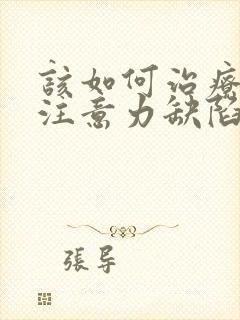 該如何治療
注意力缺陷
張导